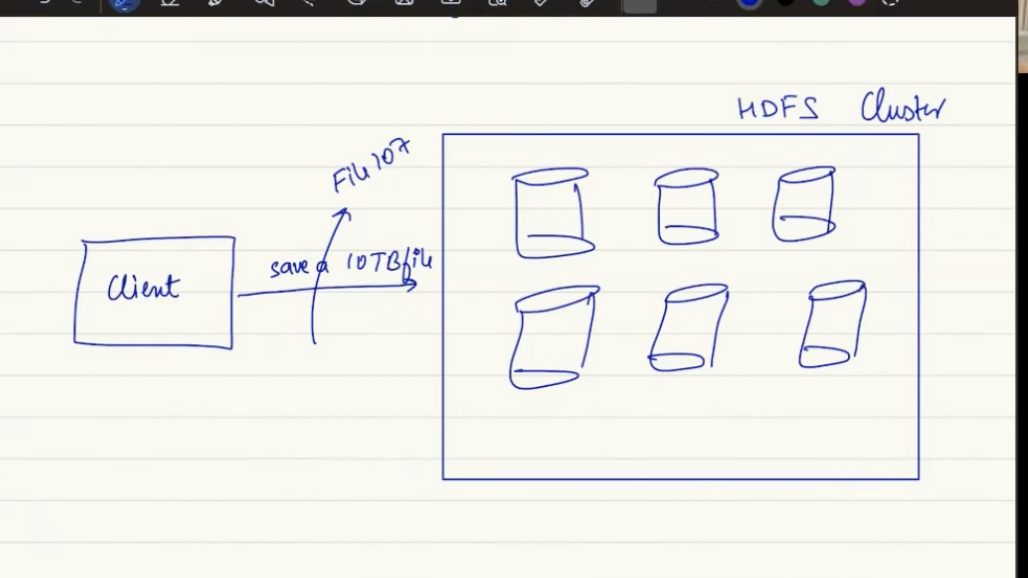 HDFS Cluster
File 107
save a 10TB file
Client